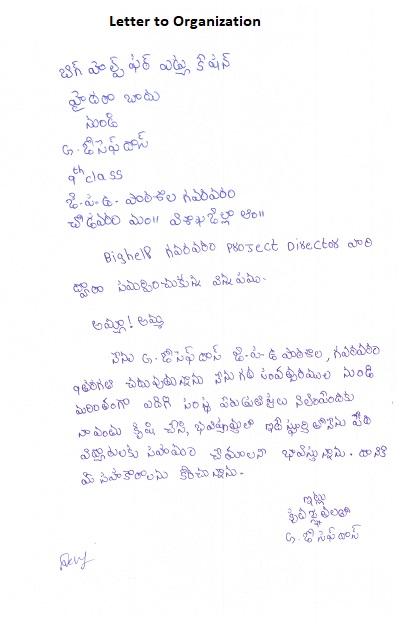 Letter to Organization
బిగ్ హెల్ప్ ఫర్ ఎడ్యుకేషన్
హైదరాబాదు
నుండి
G. జోసెఫ్ దాస్
9th class
జి.ప.ఉ. పాఠశాల గవరవరం
చోడవరం మం॥ విశాఖజిల్లా
Bighelp గవరవరం Project Director వారి
ద్వారా సమర్పించుకున్న విన్నపము.
అమ్మా! అమ్మ
నేను G. జోసెఫ్ దాస్ జి.ప.ఉ పాఠశాల, గవరవరం
9తరగతి చదువుతున్నాను నేను గత సంవత్సరముల నుండి
మరింతంగా ఎదిగి సంస్థ పేరు నిలిపేందుకు
నావంతు కృషి చేసి, భవిష్యత్తులో ఇదే స్ఫూర్తితో నేను పేద
విద్యార్థులకు సహాయం చేయాలని భావిస్తున్నాను. దానికి
మీ సహకారాలను కోరుచున్నాను.
ఇట్లు
G. జోసెఫ్ దాస్